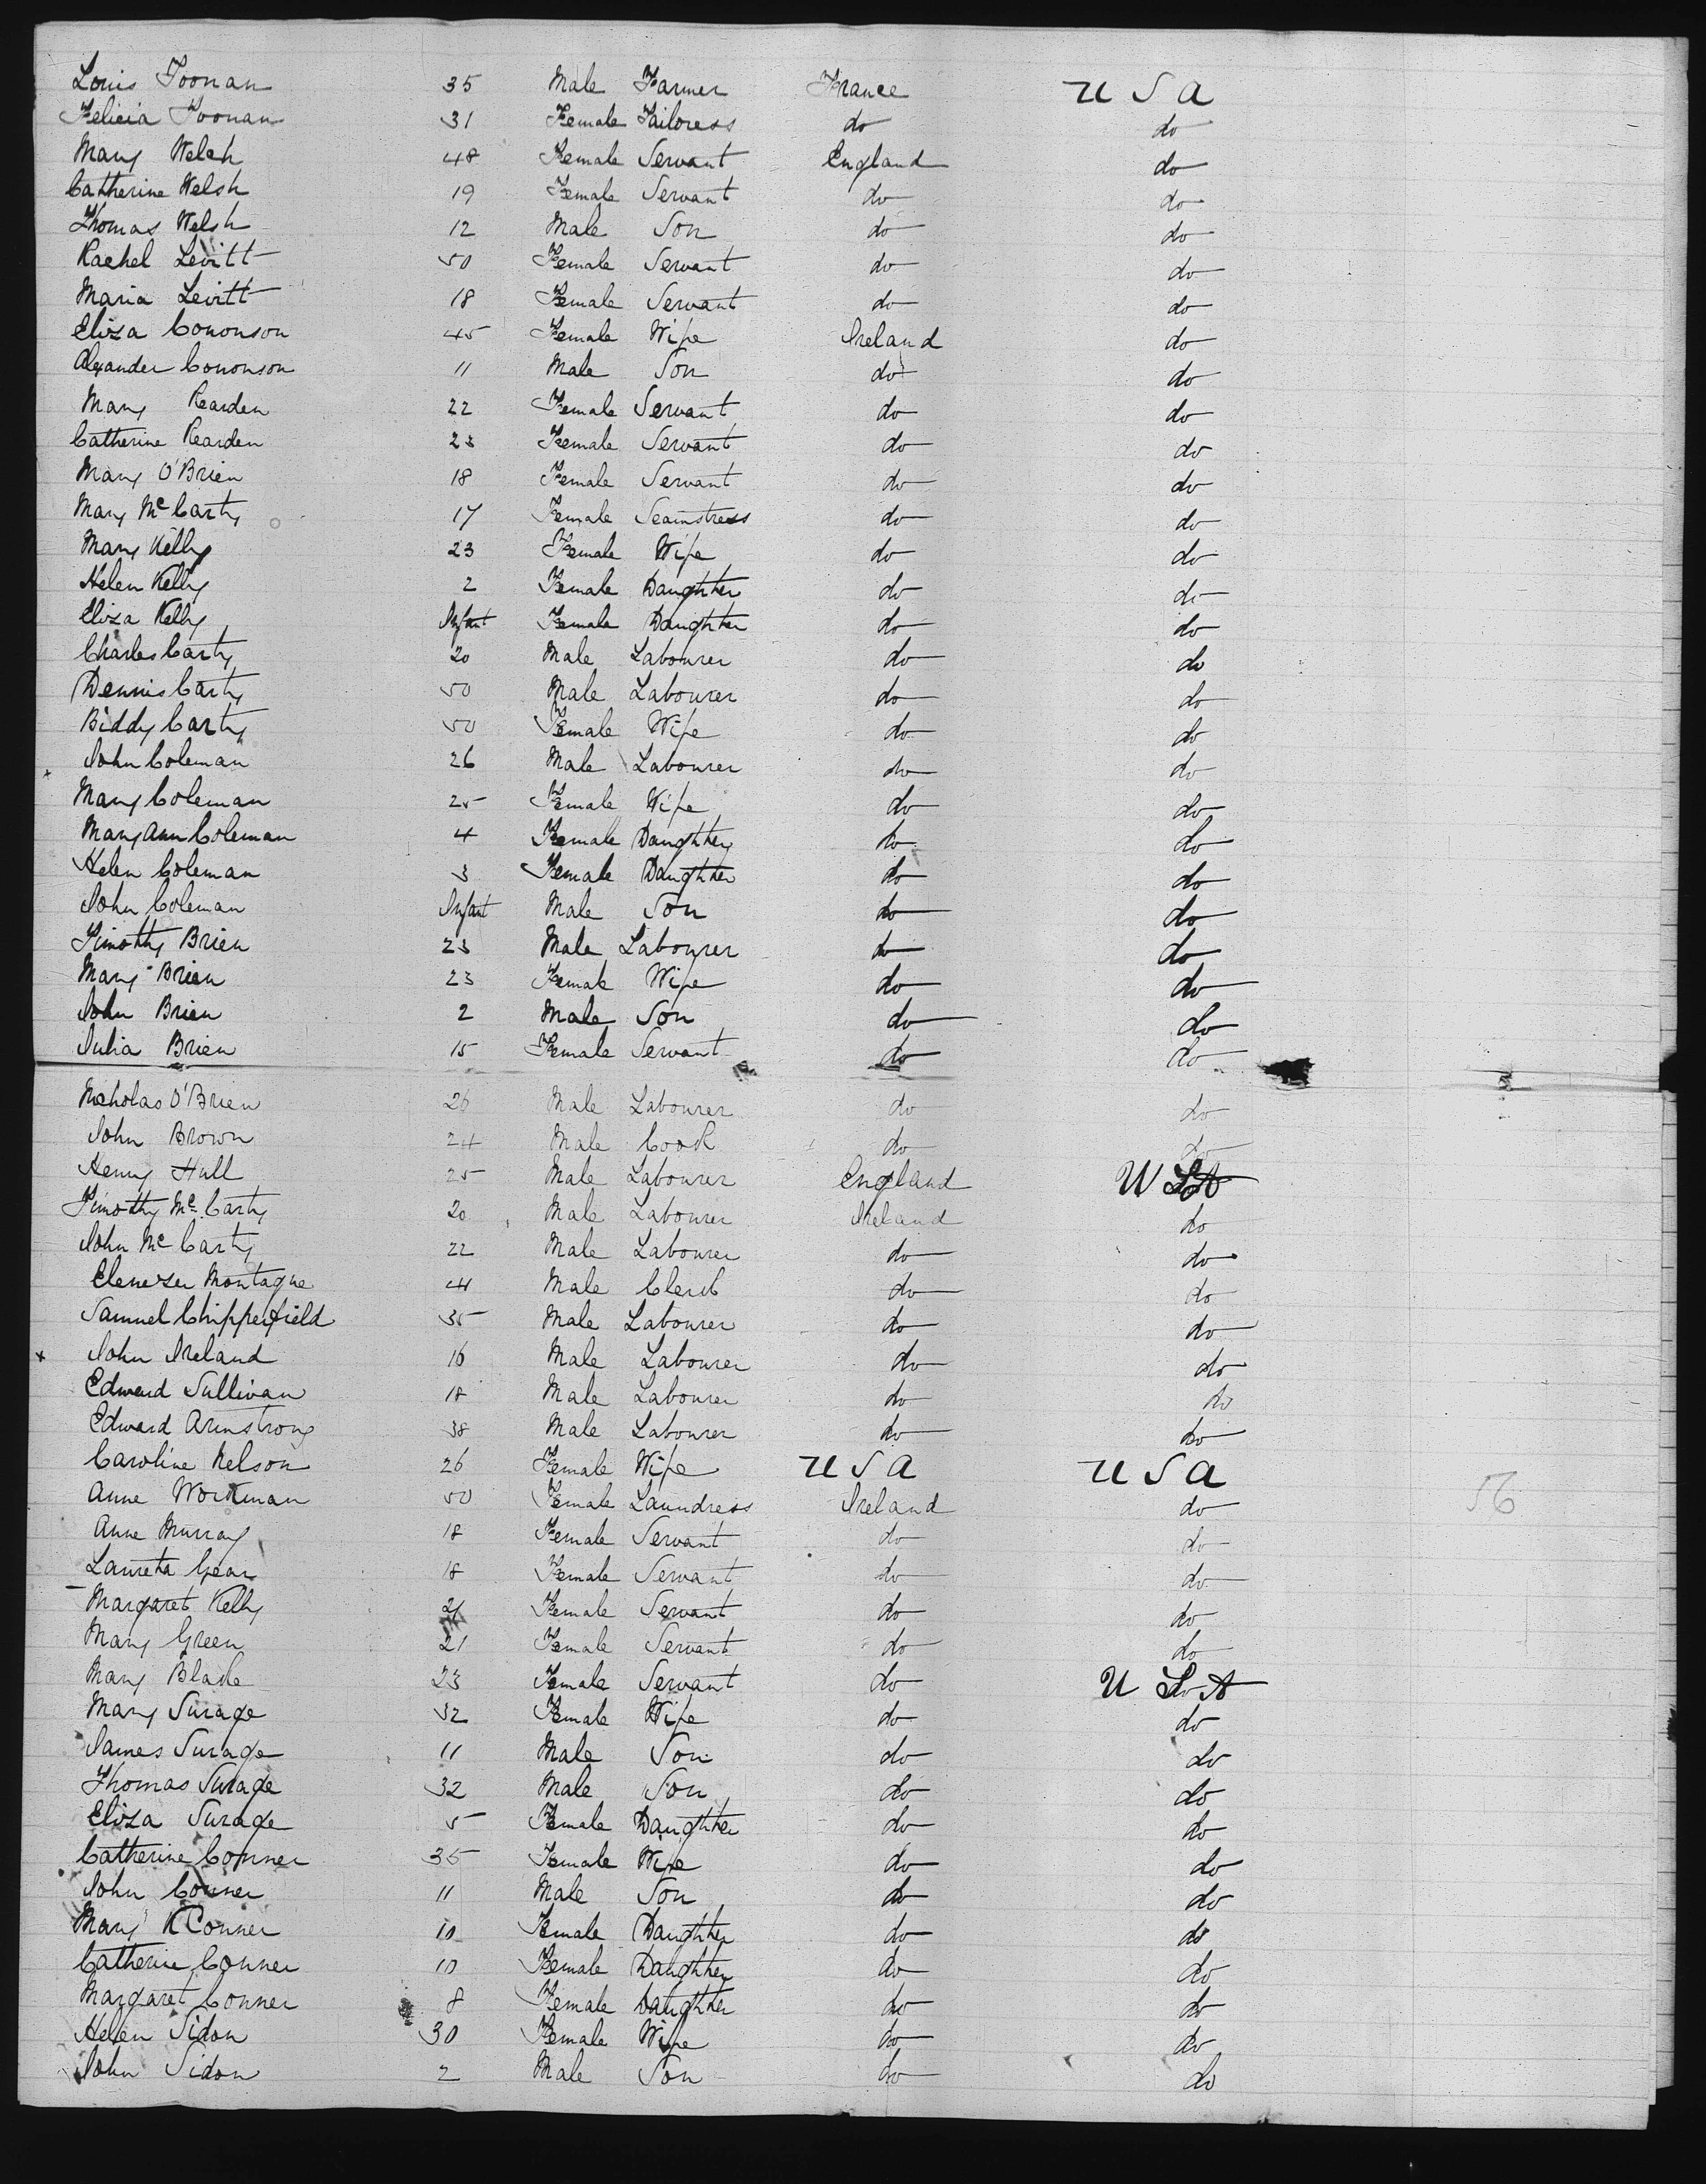 Louis Toonan 35 Male Farmer France U S A
Felicia Toonan 31 Female Tailoress do do
Mary Welsh 48 Female Servant England do
Catherine Welsh 19 Female Servant do do
Thomas Welsh 12 Male Son do do
Rachel Levitt 50 Female Servant do do
Maria Levitt 18 Female Servant do do
Eliza Cononson 45 Female Wife Ireland do
Alexander Cononson 11 Male Son do do
Mary Rearden 22 Female Servant do do
Catherine Rearden 23 Female Servant do do
Mary O'Brien 18 Female Servant do do
Mary McCarty 17 Female Seamstress do do
Mary Kelly 23 Female Wife do do
Helen Kelly 2 Female Daughter do do
Eliza Kelly Infant Female Daughter do do
Charles Carty 20 Male Labourer do do
Dennis Carty 50 Male Labourer do do
Biddy Carty 50 Female Wife do do
John Coleman 26 Male Labourer do do
Mary Coleman 25 Female Wife do do
Mary Ann Coleman 4 Female Daughter do do
Helen Coleman 3 Female Daughter do do
John Coleman Infant Male Son do do
Timothy Brien 23 Male Labourer do do
Mary Brien 23 Female Wife do do
John Brien 2 Male Son do do
Julia Brien 15 Female Servant do do
Nicholas O'Brien 26 Male Labourer do do
John Brown 24 Male Cook do do
Henry Hull 25 Male Labourer England U S A
Timothy McCarty 20 Male Labourer Ireland do
John McCarty 22 Male Labourer do do
Ebenezer Montague Male Clerk do do
Samuel Chipperfield 35 Male Labourer do do
x John Ireland 16 Male Labourer do do
Edward Sullivan 18 Male Labourer do do
Edward Armstrong 38 Male Labourer do do
Caroline Nelson 26 Female Wife U S A U S A
Anne Workman 50 Female Laundress Ireland do 56
Anne Murray 18 Female Servant do do
Laureta Gear 18 Female Servant do do
Margaret Kelly 21 Female Servant do do
Mary Green 21 Female Servant do do
Mary Blake 23 Female Servant do U S A
Mary Surage 32 Female Wife do do
James Surage 11 Male Son do do
Thomas Surage 32 Male Son do do
Eliza Surage 5 Female Daughter do do
Catherine Conner 35 Female Wife do do
John Conner 11 Male Son do do
Mary K Conner 10 Female Daughter do do
Catherine Conner 10 Female Daughter do do
Margaret Conner 8 Female Daughter do do
Helen Sidon 30 Female Wife do do
John Sidon 2 Male Son do do